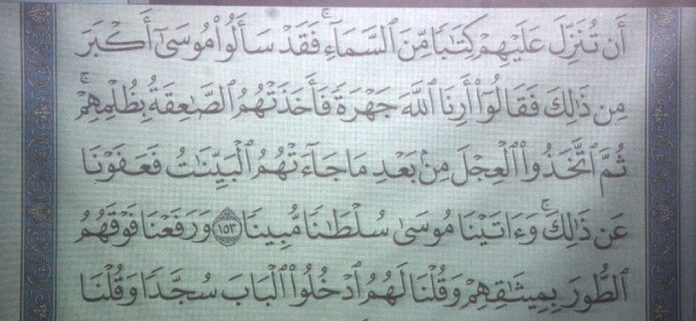 أَن تُنَزِّلَ عَلَيْهِمْ كِتَٰبًا مِّنَ ٱلسَّمَآءِۚ فَقَدْ سَأَلُوا۟ مُوسَىٰٓ أَكْبَرَ
مِن ذَٰلِكَ فَقَالُوٓا۟ أَرِنَا ٱللَّهَ جَهْرَةً فَأَخَذَتْهُمُ ٱلصَّٰعِقَةُ بِظُلْمِهِمْۚ
ثُمَّ ٱتَّخَذُوا۟ ٱلْعِجْلَ مِنۢ بَعْدِ مَا جَآءَتْهُمُ ٱلْبَيِّنَٰتُ فَعَفَوْنَا
عَن ذَٰلِكَۚ وَءَاتَيْنَا مُوسَىٰ سُلْطَٰنًا مُّبِينًا ١٥٣ وَرَفَعْنَا فَوْقَهُمُ
ٱلطُّورَ بِمِيثَٰقِهِمْ وَقُلْنَا لَهُمُ ٱدْخُلُوا۟ ٱلْبَابَ سُجَّدًا وَقُلْنَا